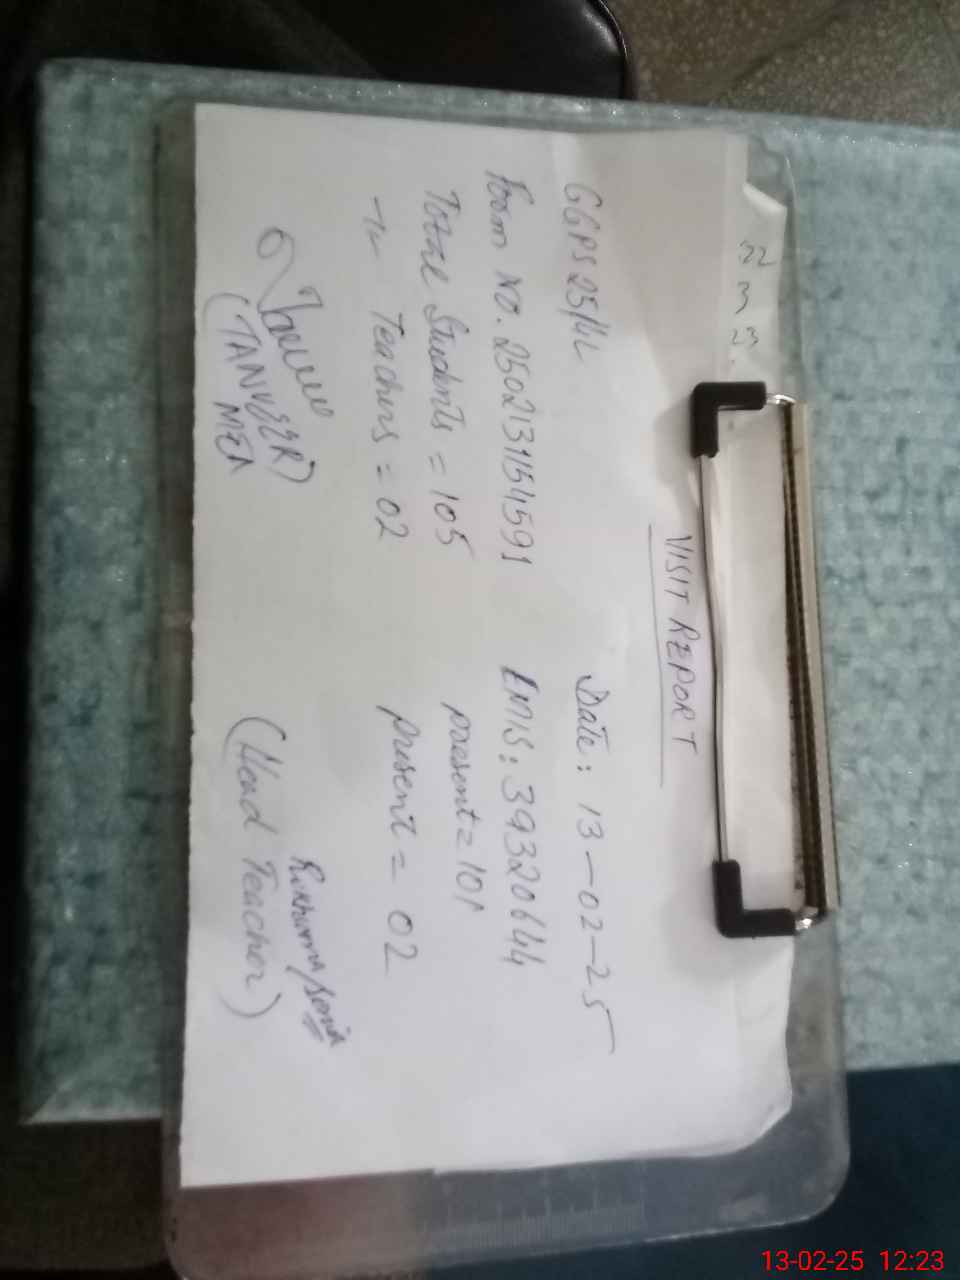 22
3
23
VISIT REPORT
GGPS 25/4L Date: 13-02-25
Form NO. 2502131154591 EMIS: 39320644
Total Students = 105 present = 101
Teachers = 02 present = 02
(TANVEER) (Head Teacher)
MEA
13-02-25 12:23